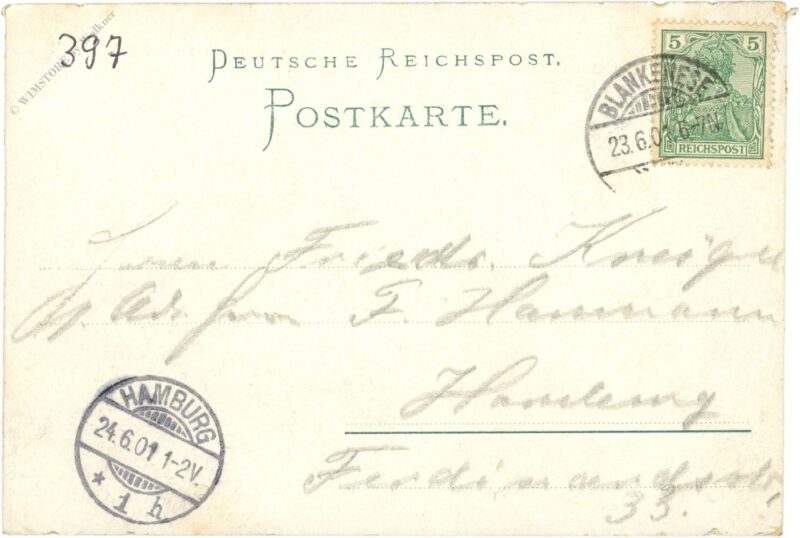 © WIMSTORE
397
DEUTSCHE REICHSPOST.
POSTKARTE.
5 5
REICHSPOST
BLANKENESE
23.6.01. 6-7N
Herrn Friedr.
p. Adr. Herrn F. Hammann
Hamburg
Ferdinandstr.
33.
HAMBURG
24.6.01 1-2V.
* 1 h